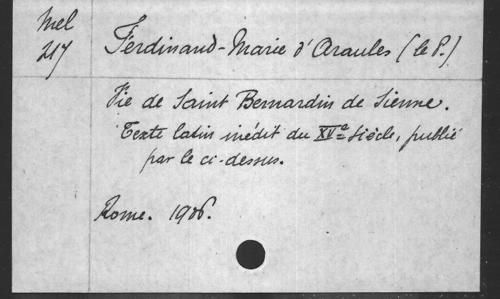 Mel
217
Ferdinand-Marie d'Araules (le P.)
Vie de Saint Bernardin de Sienne.
Texte latin inédit du XVe siècle, publié
par le ci-dessus.
Rome. 1906.